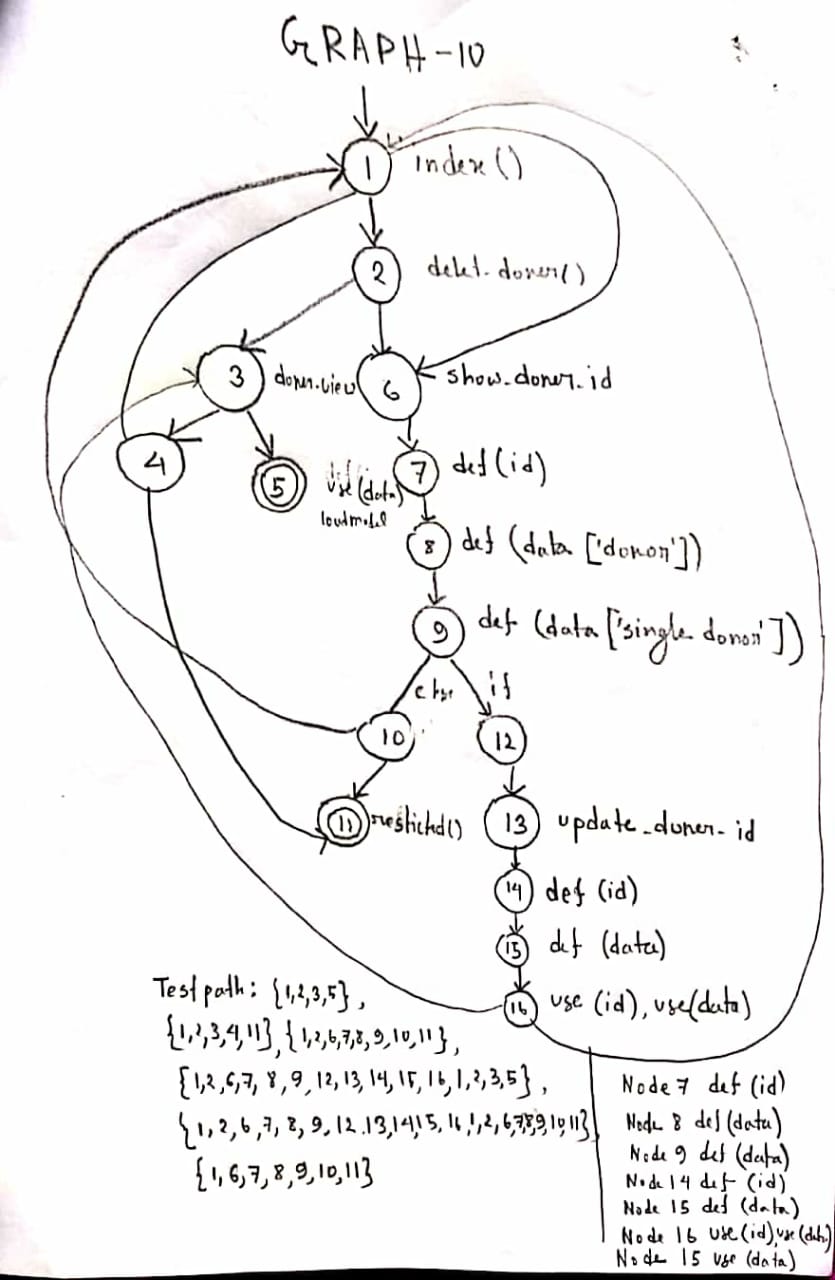 GRAPH-10
1 index()
2 delet-doner()
3 doner-view
6 show-doner-id
4
5 use(data)
loadmodel
7 def(id)
8 def (data ['donor'])
9 def (data ['single donor'])
else if
10
12
11 restictrd()
13 update-doner-id
14 def (id)
15 def (data)
16 use (id), use(data)
Test path: {1,2,3,5},
{1,2,3,4,11}, {1,2,6,7,8,9,10,11},
{1,2,6,7, 8, 9, 12, 13, 14, 15, 16, 1, 2, 3, 5},
{1, 2, 6, 7, 8, 9, 12.13,14,15, 16,1,2, 6,7,8,9,10,11}
{1,6,7,8,9,10,11}
Node 7 def (id)
Node 8 def (data)
Node 9 def (data)
Node 14 def (id)
Node 15 def (data)
Node 16 use(id),use(data)
Node 15 use (data)